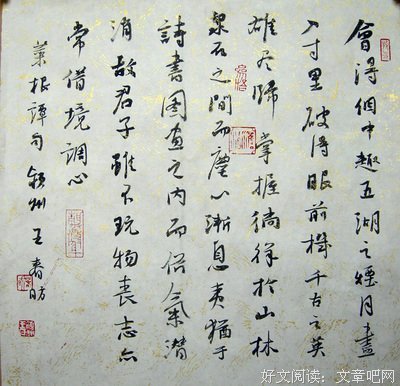 會得個中趣五湖之煙月盡
入寸里破得眼前機千古之英
雄尽歸掌握徜徉於山林
泉石之間而塵心漸息夷猶于
詩書圖畫之內而俗氣潛
消故君子雖不玩物喪志亦
常借境調心
菜根譚句 州 王春
好文阅读：文章吧网